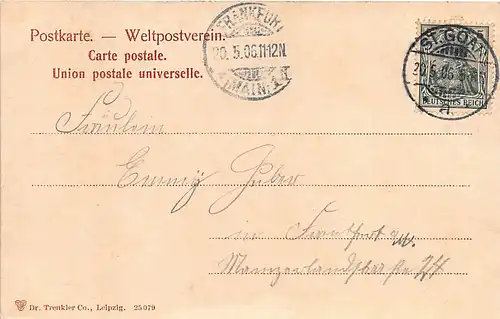 Postkarte. — Weltpostverein.
Carte postale.
Union postale universelle.
FRANKFURT
20.5.06.11-12N.
(MAIN)
ST. GOAR
20.5.06
DEUTSCHES REICH
Fräulein
Emmy Huber
in Frankfurt a/M.
Mainzerlandstrasse 24
Dr. Trenkler Co., Leipzig. 25 079